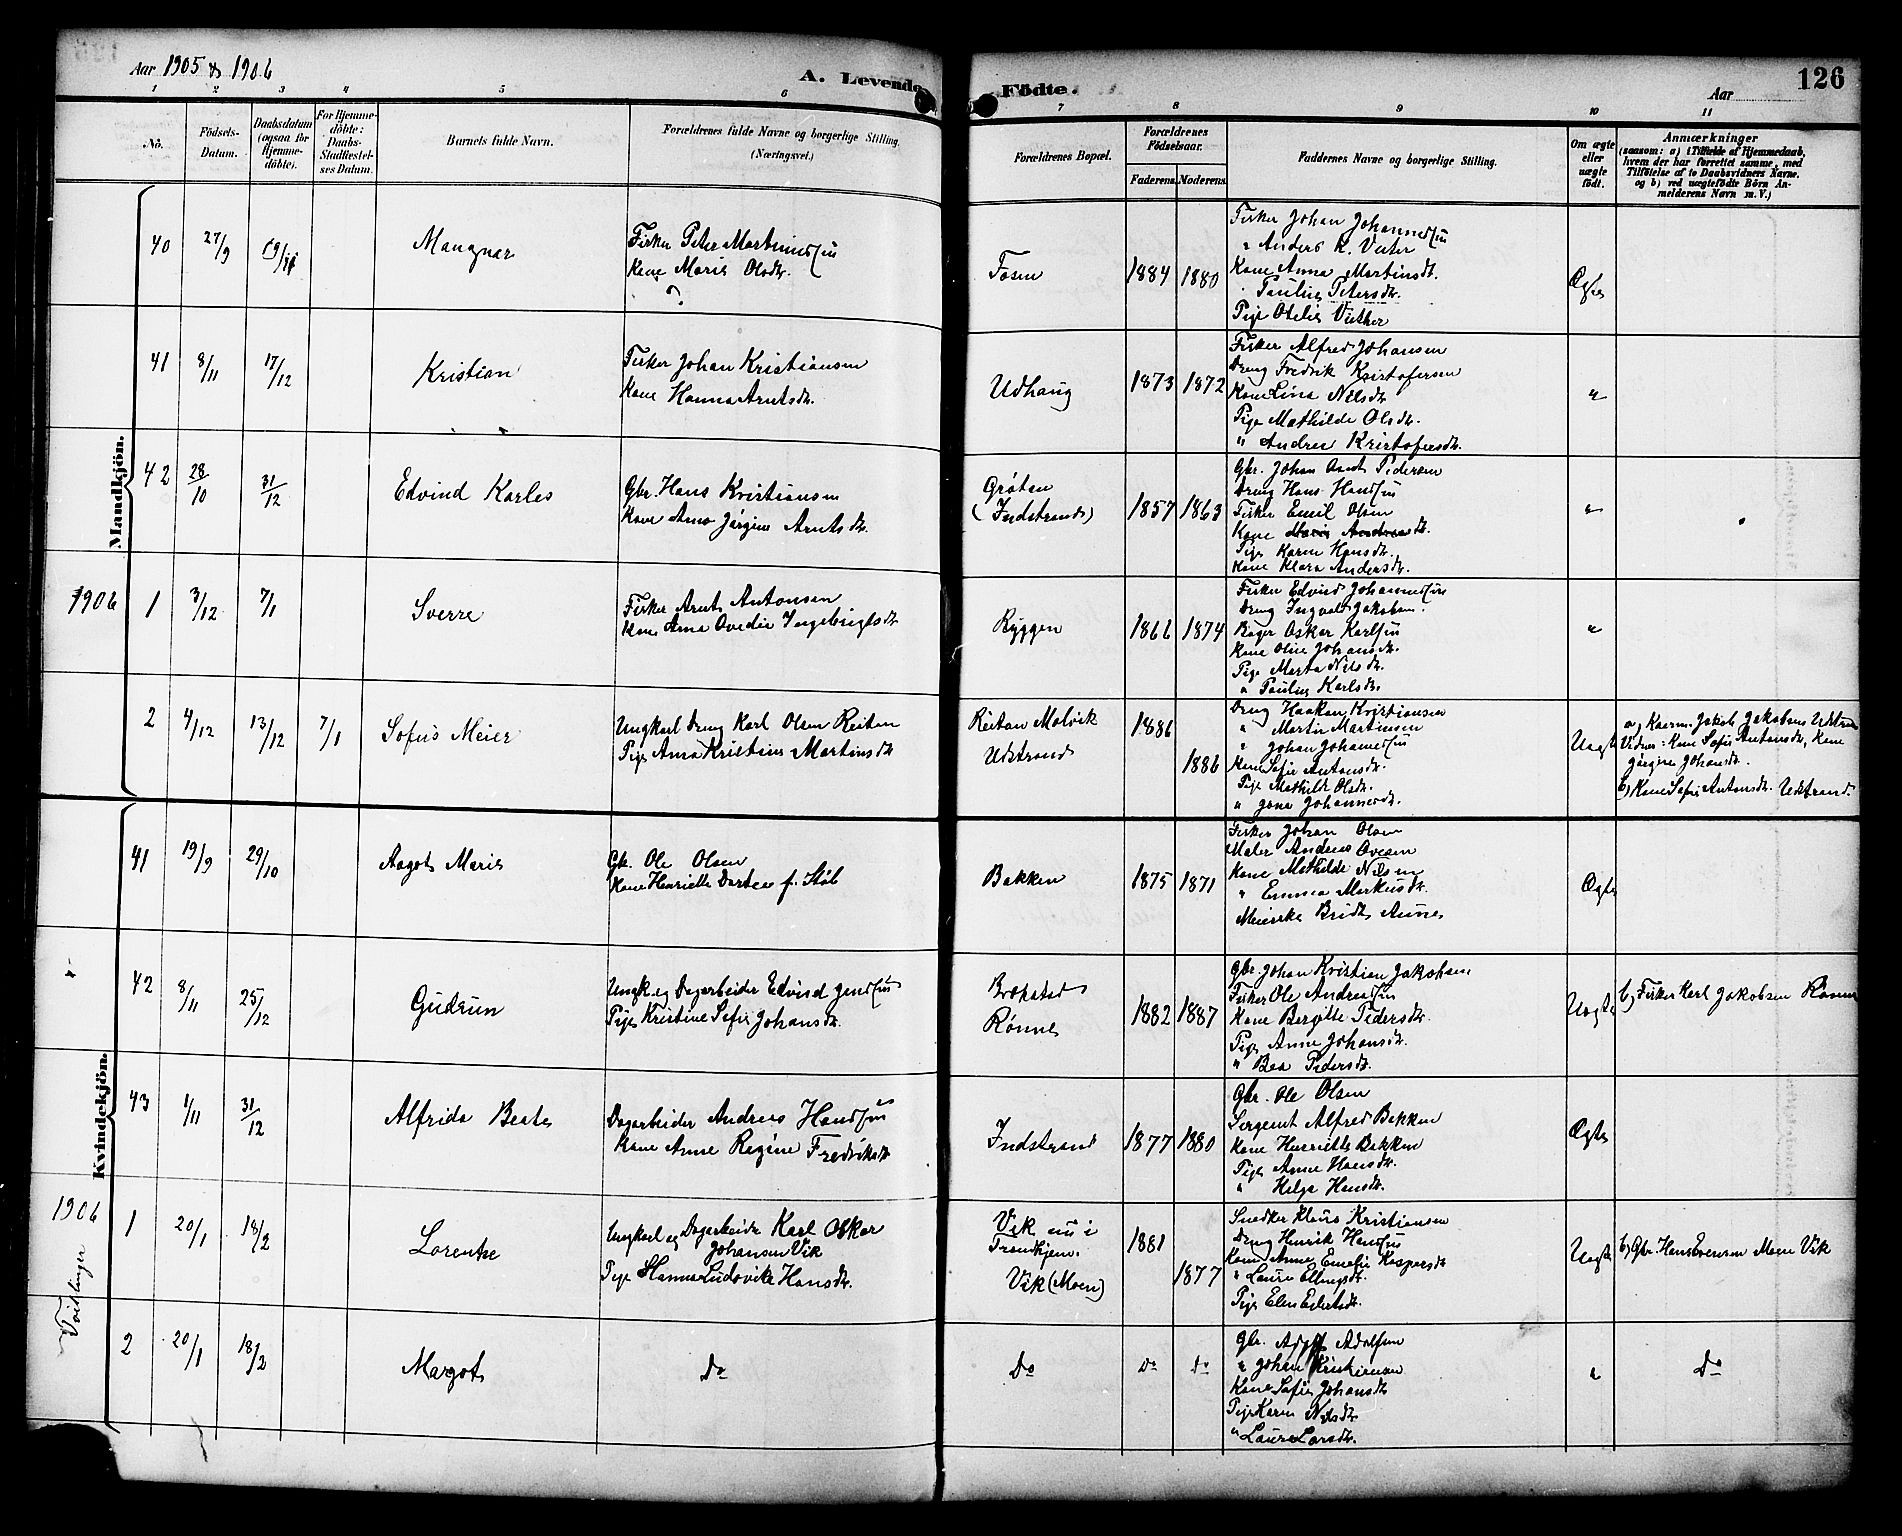 Aar 1905 & 1906
A. Levende Födte.
Aar
126
1 2 3 4 5 6 7 8 9 10 11
No.
Födsels-Datum.
Daabsdatum (ogsaa for Hjemmedöbte).
For Hjemmedöbte: Daabs-Stadfæstelses Datum.
Barnets fulde Navn.
Forældrenes fulde Navne og borgerlige Stilling.
(Næringsvei.)
Forældrenes Bopæl.
Forældrenes Födselsaar.
Faderens. Moderens.
Faddernes Navne og borgerlige Stilling.
Om ægte eller uægte födt.
Anmærkninger
(saasom: a) i Tilfælde af Hjemmedaab,
hvem der har forrettet samme, med
Tilföielse af to Daabsvidners Navne.
og b) ved uægtefödte Börn An-
melderens Navn m. V.)
Mandkjön.
40 27/9 19/11 Mangnar
Fisker Peter Martinus
Kone Marie Olsdtr.
Tosen 1884 1880
Fisker Johan Johannessen
" Anders K.
Kone Anna Martinsdt.
" Pauline Petersdtr.
Pige Otelie
Ægte
41 8/11 17/12 Kristian
Fisker Johan Kristiansen
Kone Hanna Arntsdtr.
Udhaug 1873 1872
Fisker Alfred Johansen
Dreng Fredrik Kristofersen
Kone Lina Nilsdtr
Pige Mathilde Olsdtr.
" Andrea Kristofersdtr.
"
42 28/10 31/12 Edvind Karles
Gbr. Hans Kristiansen
Kone Anne Jørgine Arntsdtr.
Grøten
(Indstrand) 1857 1863
Gbr. Johan Arnt Pedersen
Dreng Hans Hansen
Fisker Emil Olsen
Kone
Pige Karen Hansdtr.
Kone Klara Andersdtr.
"
1906 1 3/12 7/1 Sverre
Fisker Arnt Antonsen
Kone Anna Ovedie Ingebrigtsdtr
Ryggen 1866 1874
Fisker Edvind Johannessen
Dreng Ingvald Jakobsen.
Bager Oskar Karlsen
Kone Oline Johansdtr.
Pige Marta Nilsdtr.
" Pauline Karlsdtr.
"
2 4/12 13/12 7/1 Sofus Meier
Ungkarl Dreng Karl Olsen Reitan
Pige Anna Kristine Martinsdtr
Reitan Malvik
Udstrand 1886 1886
Dreng Haakon Kristiansen
" Martin Martinsen
" Johan Johannessen
Kone Sofie Antonsdtr.
Pige Mathilde Olsdtr.
" Jana Johannesdtr.
Uægte
a) Kaarm. Jakob Jakobsen Udstrand
Vidner: Kone Sofie Antonsdtr, Kone
Jørgine Johansdtr.
b) Kone Sofie Antonsdtr. Udstrand.
Kvindekjön.
41 19/9 29/10 Aagot Marie
Gbr. Ole Olsen
Kone Henriette Dortea f. Støb
Bakken 1875 1871
Fisker Johan Olsen
Maler Andreas Ovesen
Kone Mathilde Nilsen
" Emma Markusdtr.
Meierske Bridt Aune
Ægte
42 8/11 25/12 Gudrun
Ungk. og Dagarbeider Edvind Jenssen
Pige Kristine Sofie Johansdtr.
Brekstad
Rønne 1882 1887
Gbr. Johan Kristian Jakobsen
Fisker Ole Andreassen
Kone Bergitte Pedersdtr.
Pige Anne Johansdtr.
" Bea Pedersdtr.
Uægte
b) Fisker Karl Jakobsen Rønne
43 1/11 31/12 Alfrida Beate
Dagarbeider Andreas Hansen
Kone Anne Regine Fredriksdtr
Indstrand 1877 1880
Gbr. Ole Olsen
Sergeant Alfred Bakken
Kone Henriette Bakken
Pige Anne Hansdtr.
" Helga Hansdtr.
Ægte
1906 Tvillinger
1 20/1 18/2 Lorentze
Ungkarl og Dagarbeider Karl Oskar
Johansen Vik
Pige Hanna Ludovikke Hansdtr.
Vik nu i
Trondhjem.
Vik (Moen) 1881 1877
Snedker Klaus Kristiansen
Dreng Henrik Hansen
Kone Anne Emelie Kaspersdtr
" Laura Ellingsdtr.
Pige Elen Eilertsdtr.
Uægte
b) Gbr. Hans Evensen Moen Vik
2 20/1 18/2 Margot
Do Do Do Do
Gbr. Adolf Adolfsen
" Johan Kristiansen
Kone Sofie Johansdtr
Pige Karen Nilsdtr.
" Laura Larsdtr.
" Do